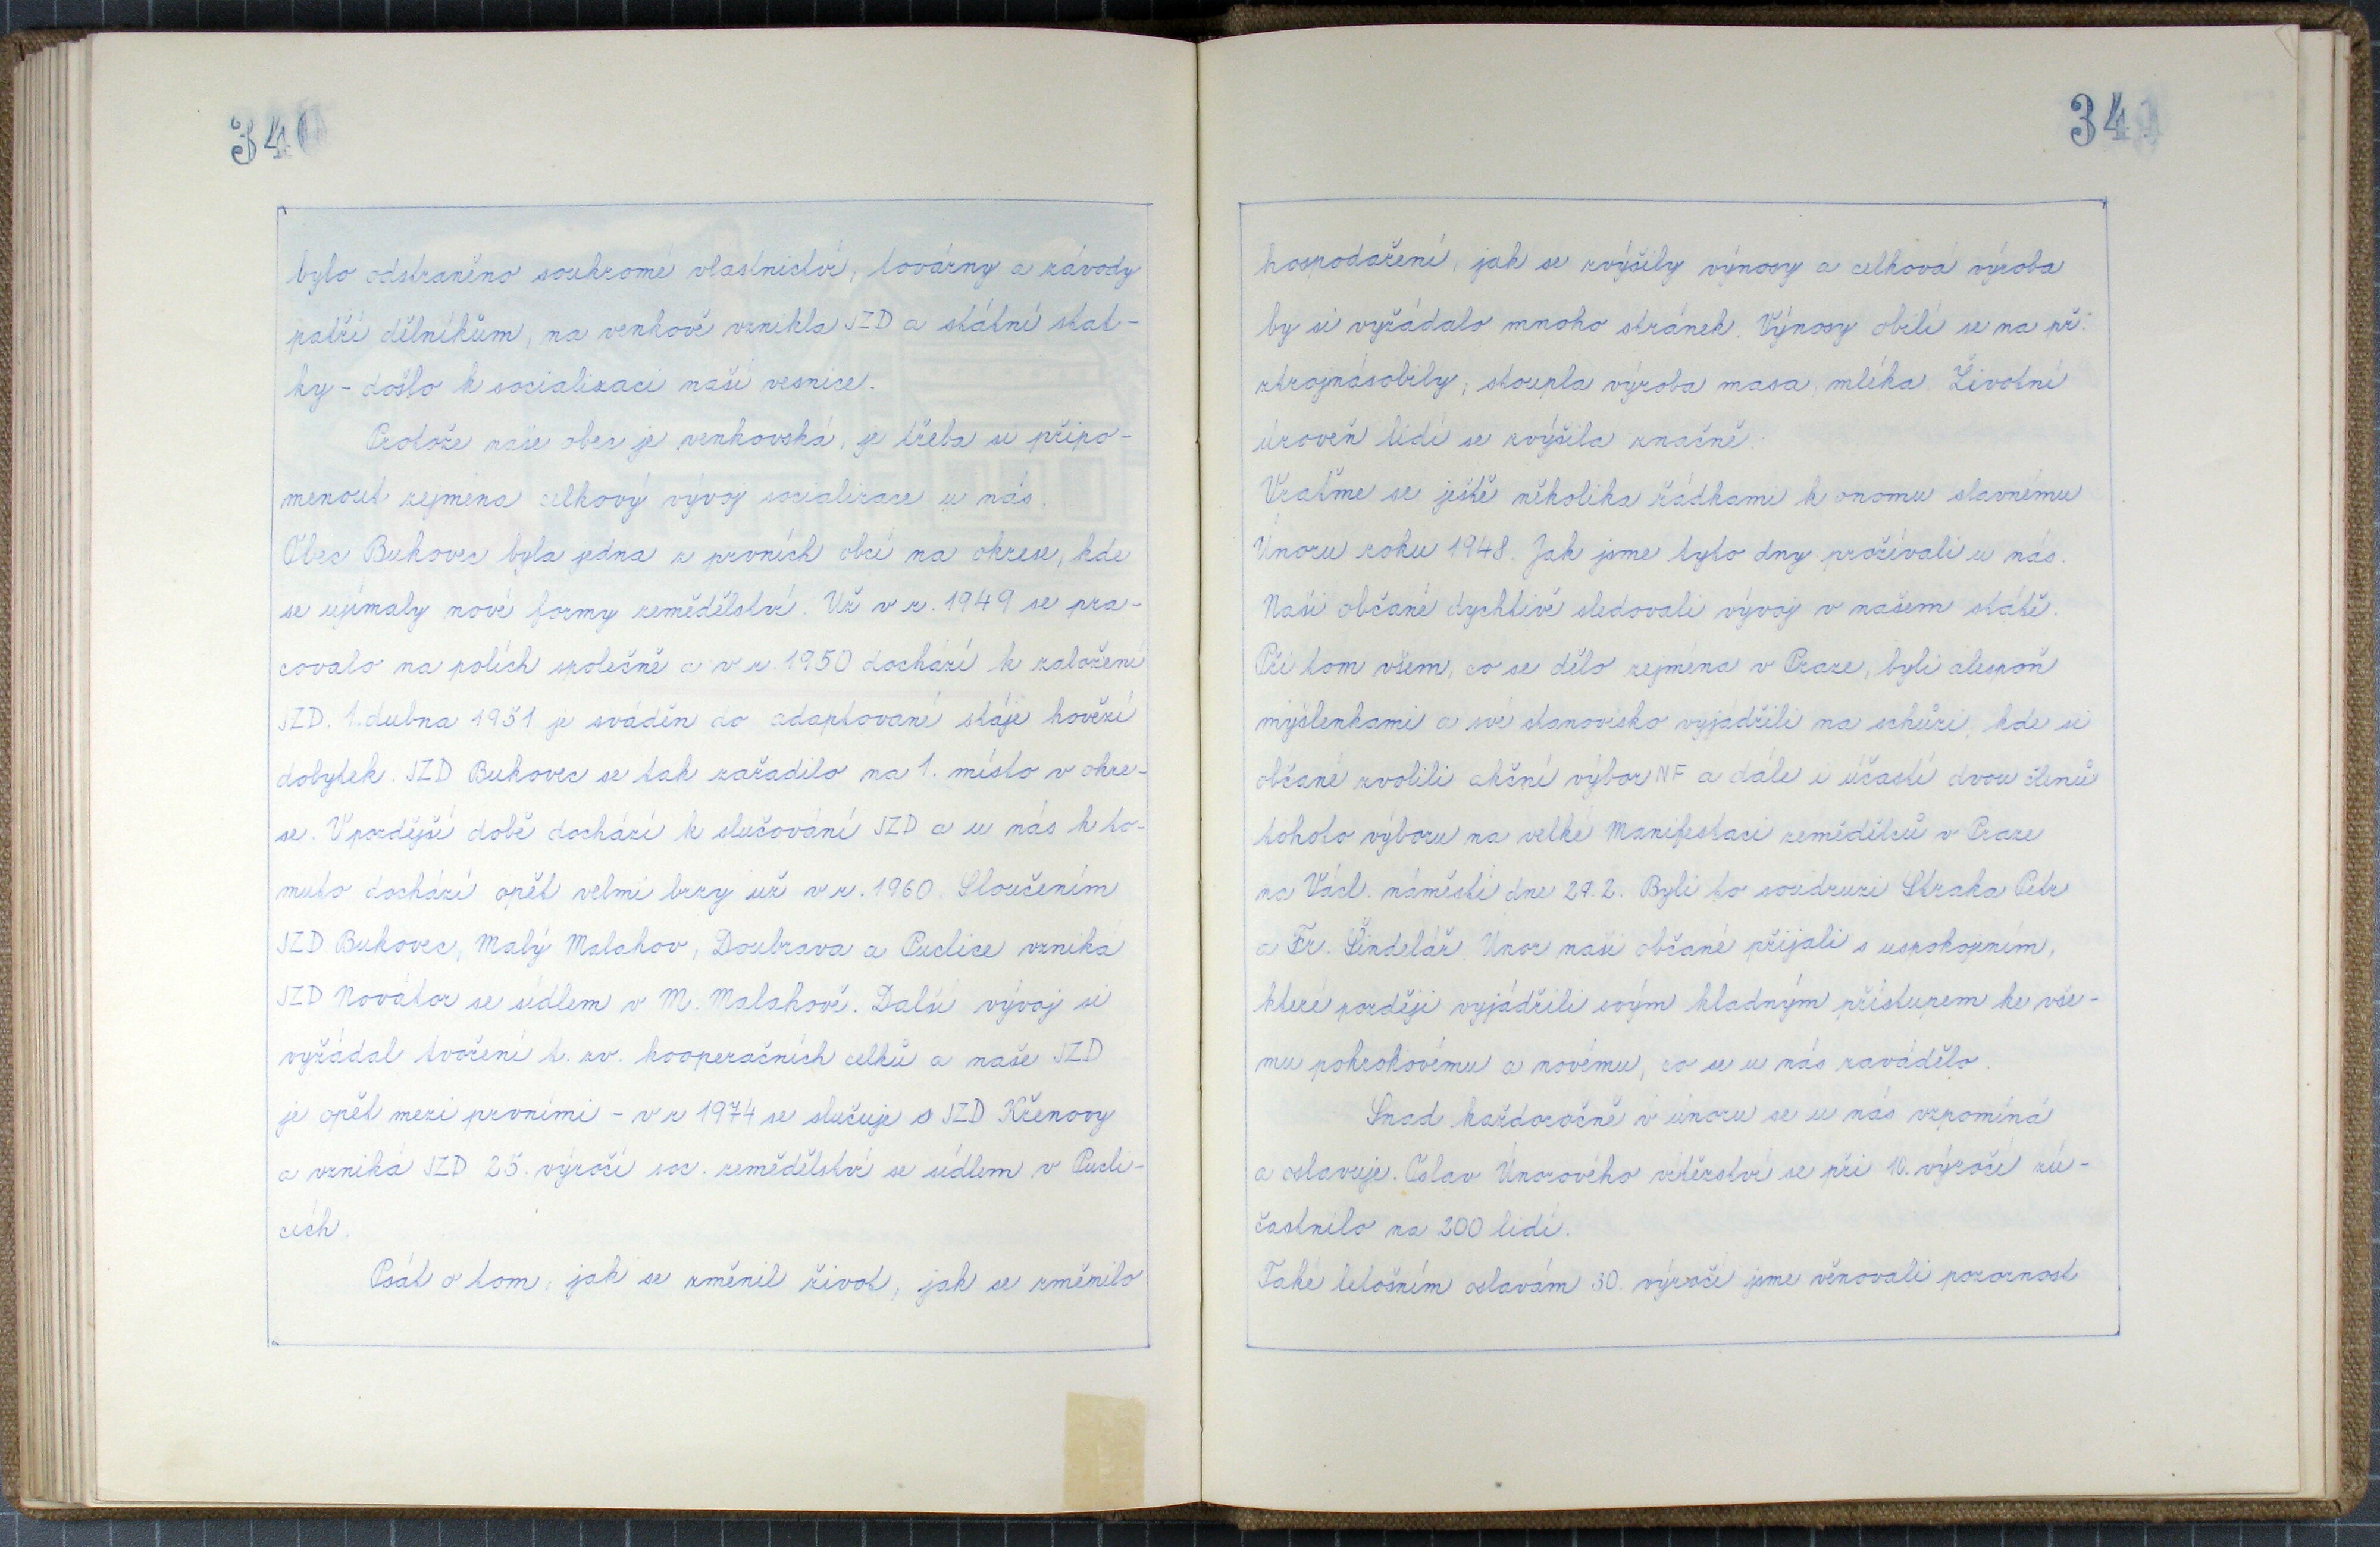 340
bylo odstraněno soukromé vlastnictví, továrny a závody
patří dělníkům, na venkově vznikla JZD a státní stat-
ky - došlo k socializaci naší vesnice.
Protože naše obec je venkovská, je třeba si připo-
menout zejména celkový vývoj socializace u nás.
Obec Bukovec byla jedna z prvních obcí na okrese, kde
se ujímaly nové formy zemědělství. Už v r. 1949 se pra-
covalo na polích společně a v r. 1950 dochází k založení
JZD. 1. dubna 1951 je sváděn do adaptované stáje hovězí
dobytek. JZD Bukovec se tak zařadilo na 1. místo v okre-
se. V pozdější době dochází k slučování JZD a u nás k to-
muto dochází opět velmi brzy už v r. 1960. Sloučením
JZD Bukovec, Malý Malahov, Doubrava a Puclice vzniká
JZD Novátor se sídlem v M. Malahově. Další vývoj si
vyžádal tvoření t. zv. kooperačních celků a naše JZD
je opět mezi prvními - v r 1974 se slučuje s JZD Křenovy
a vzniká JZD 25. výročí soc. zemědělství se sídlem v Pucli-
cích.
Psát o tom, jak se změnil život, jak se změnilo
341
hospodaření, jak se zvýšily výnosy a celková výroba
by si vyžádalo mnoho stránek. Výnosy obilí se na př.
ztrojnásobily, stoupla výroba masa, mléka. Životní
úroveň lidí se zvýšila značně.
Vraťme se ještě několika řádkami k onomu slavnému
Únoru roku 1948. Jak jsme tyto dny prožívali u nás.
Naši občané dychtivě sledovali vývoj v našem státě.
Při tom všem, co se dělo zejména v Praze, byli alespoň
myšlenkami a své stanovisko vyjádřili na schůzi, kde si
občané zvolili akční výbor NF a dále i účastí dvou členů
tohoto výboru na velké Manifestaci zemědělců v Praze
na Václ. náměstí dne 29. 2. Byli to soudruzi Straka Petr
a Fr. Šindelář. Únor naši občané přijali s uspokojením,
které později vyjádřili svým kladným přístupem ke vše-
mu pokrokovému a novému, co se u nás zavádělo.
Snad každoročně v únoru se u nás vzpomíná
a oslavuje. Oslav Únorového vítězství se při 10. výročí zú-
častnilo na 200 lidí.
Také letošním oslavám 30. výročí jsme věnovali pozornost